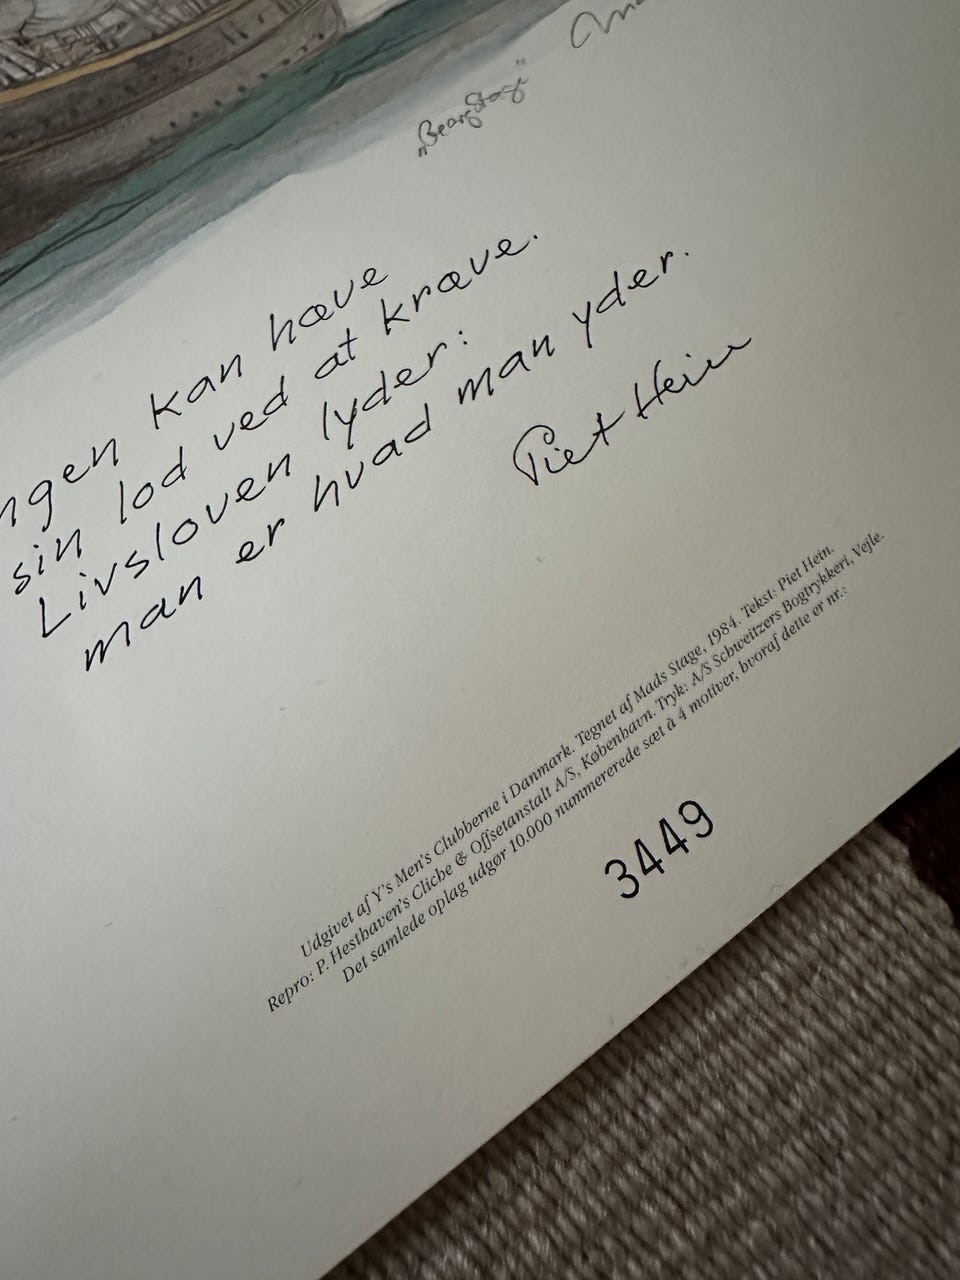 "Georg Stage"
ngen kan hæve
sin lod ved at kræve.
Livsloven lyder:
man er hvad man yder.
Piet Hein
Udgivet af Y's Men's Clubberne i Danmark. Tegnet af Mads Stage, 1984. Tekst: Piet Hein.
Repro: P. Hesthaven's Cliche & Offsetanstalt A/S, København. Tryk: A/S Schweitzers Bogtrykkeri, Vejle.
Det samlede oplag udgør 10.000 nummererede sæt à 4 motiver, hvoraf dette er nr.:
3449